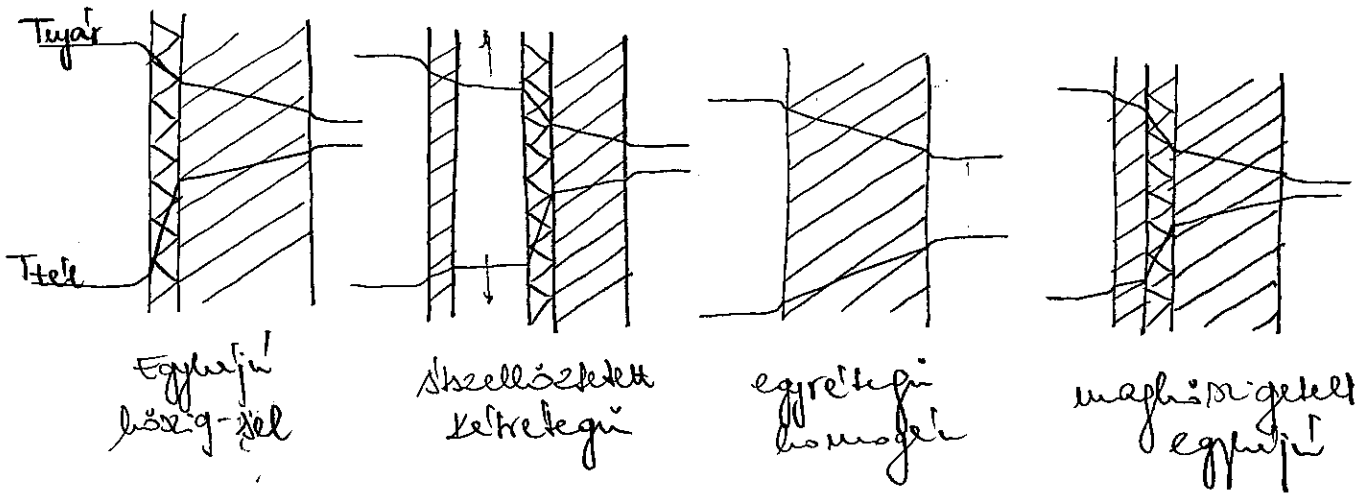 Tnyár
Ttél
Egyhéjú
hőszig-sel
átszellőztetett
kétrétegű
egyrétegű
homogén
maghőszigetelt
egyhéjú